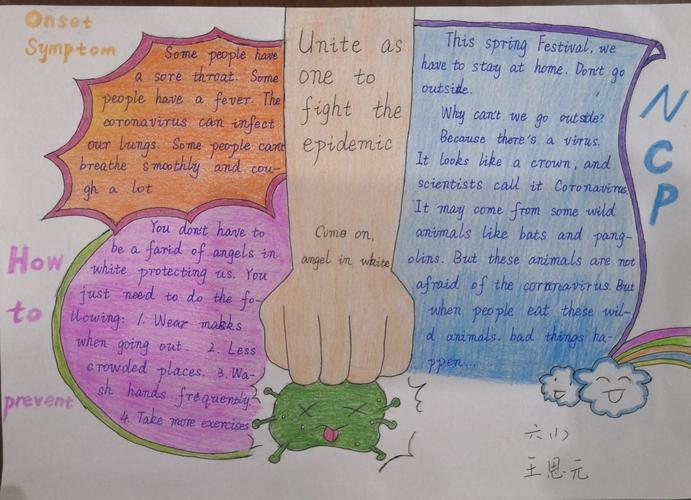 Onset
Symptom
Some people have
a sore throat. Some
people have a fever. The
coronavirus can infect
our lungs. Some people cant
breathe smoothly and cou-
gh a lot
How
to
prevent
You don't have to
be a farid of angels in
white protecting us. You
just need to do the fo-
llowing: 1. Wear makks
when going out. 2. Less
crowded places. 3. Wa-
sh hands frequently.
4. Take more exercises
Unite as
one to
fight the
epidemic
Come on,
angel in white
This spring Festival, we
have to stay at home. Don't go
outside.
Why can't we go outside?
Because there's a virus.
It looks like a crown, and
scientists call it Coronavirus.
It may come from some wild
animals like bats and pang-
olins. But these animals are not
afraid of the coronavirus. But
when people eat these wil-
d animals. bad things ha-
ppen...
NCP
王恩元